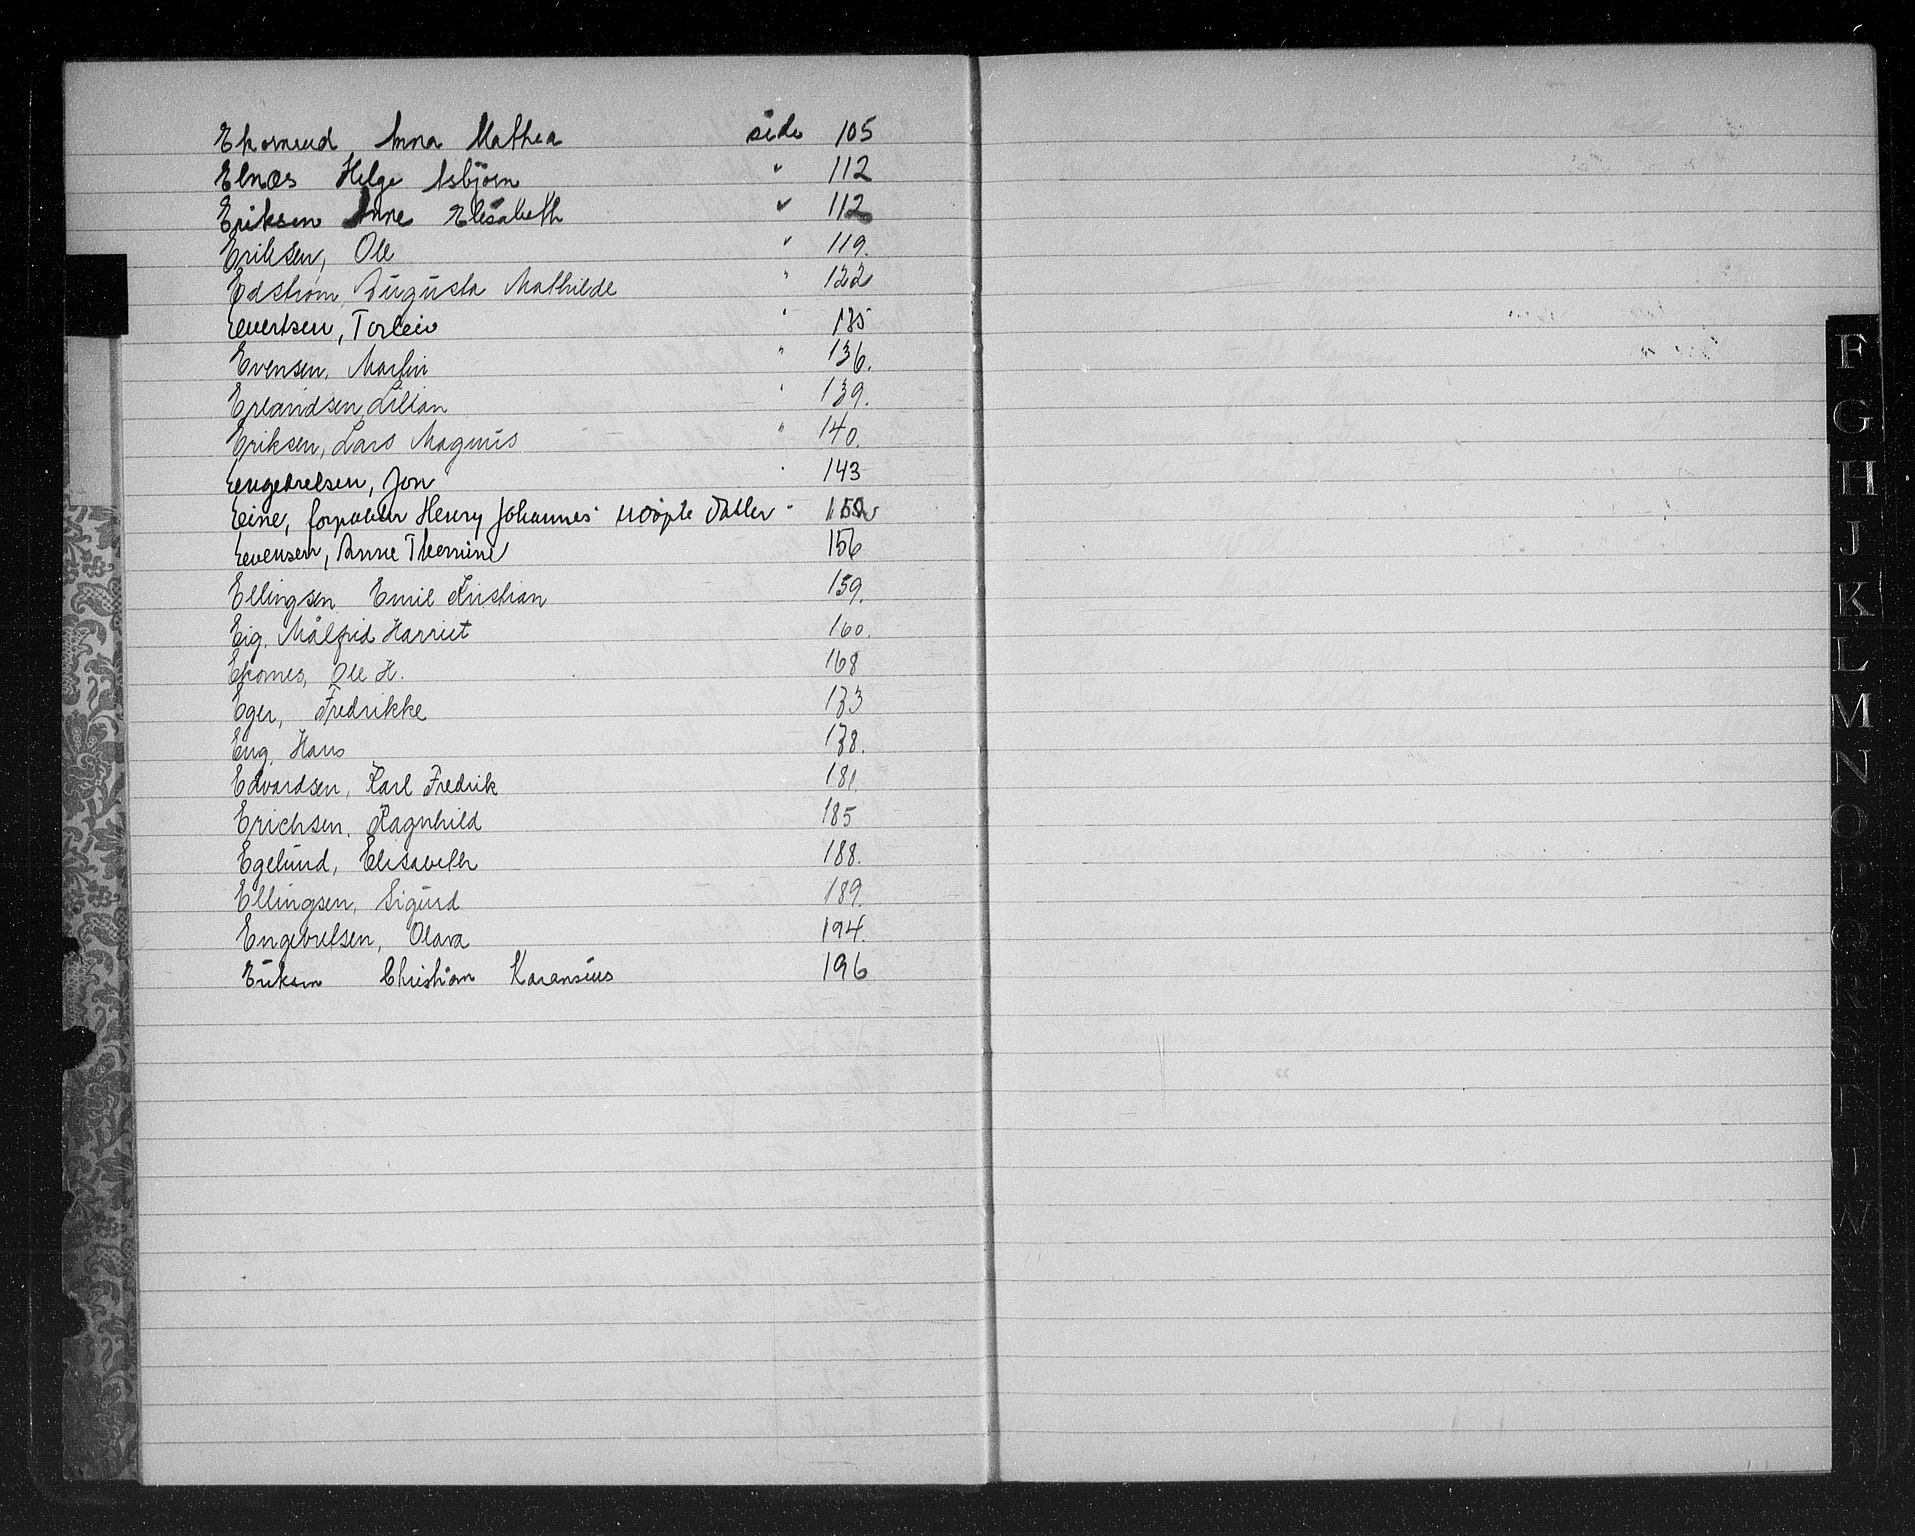 Ekornrud Anna Mathea side 105
Elnæs Helge Asbjørn " 112
Eriksen Anne Elisabeth " 112
Eriksen, Ole " 119.
Edstrøm, Augusta Mathilde " 122
Evertsen, Torleiv " 135
Evensen, Martin " 136.
Erlandsen, Lilian " 139.
Eriksen, Lars Magnus " 140.
Engebretsen, Jon " 143
Eine, Henry Johannes' udøpte Datter "
Evensen, Anne Thomine 156
Ellingsen, Emil Kristian 159.
Eig, Målfrid Harriet 160.
Ekornes, Ole H. 168
Eger, Fredrikke 173
Eng, Hans 178.
Edvardsen, Karl Fredrik 181.
Erichsen, Ragnhild 185
Egelund, Elisabeth 188.
Ellingsen, Sigurd 189.
Engebretsen, Olava 194.
Eriksen Christian Karensius 196
F
G
H
J
K
L
M
N
O
P
Q
R
S
T